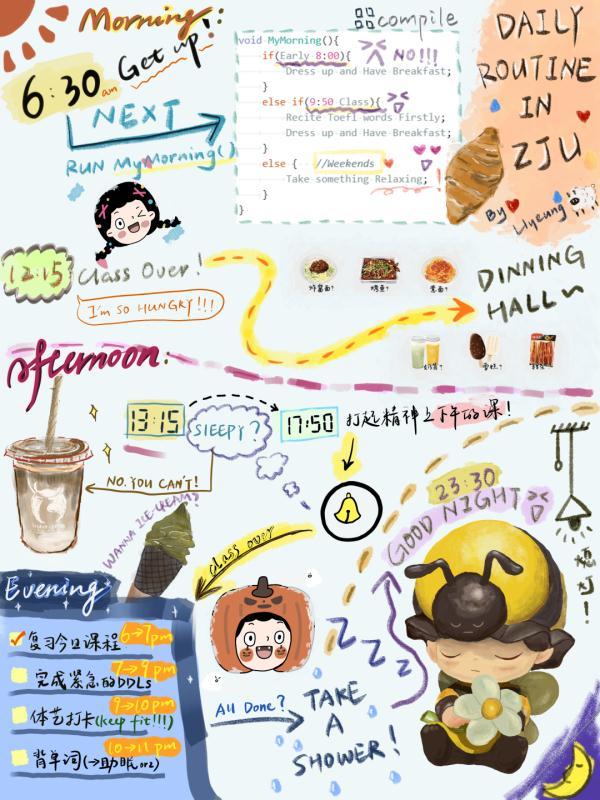 Morning:
6:30 am
Get up!
NEXT
RUN MyMorning()
compile
void MyMorning(){
if(Early 8:00){ NO!!!
Dress up and Have Breakfast;
}
else if(9:50 Class){
Recite Toefl words Firstly;
Dress up and Have Breakfast;
}
else { //Weekends
Take something Relaxing;
}
}
DAILY
ROUTINE
IN
ZJU
By Liyeung
12:15 Class Over!
I'm SO HUNGRY!!!
烤鱼?
DINNING
HALL~
Afternoon:
13:15
SlEEPY?
17:50
打起精神上下午的课!
NO. YOU CAN'T!
WANNA ICE-CREAM?
Class over
23:30
GOOD NIGHT
熄灯!
Evening
复习今日课程 6→7pm
完成紧急的DDLs 7→9 pm
体艺打卡(keep fit!!!) 9→10 pm
背单词(→助眠orz) 10→11 pm
All Done?
TAKE
A
SHOWER!
Z Z Z Z